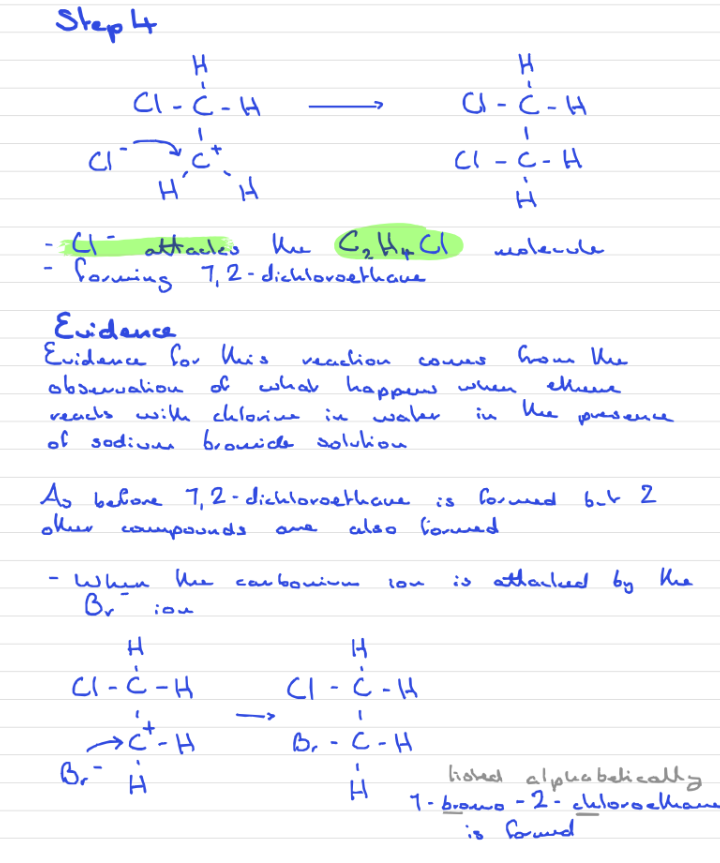 Step 4
H H
Cl - C - H → Cl - C - H
Cl⁻ C⁺ Cl - C - H
H H H
- Cl⁻ attacks the C₂H₄Cl molecule
- forming 1,2-dichloroethane
Evidence
Evidence for this reaction comes from the
observation of what happens when ethene
reacts with chlorine in water in the presence
of sodium bromide solution
As before 1,2-dichloroethane is formed but 2
other compounds are also formed
- When the carbonium ion is attacked by the
Br⁻ ion
H H
Cl - C - H Cl - C - H
→
C⁺ - H Br - C - H
Br⁻ H H
listed alphabetically
1-bromo-2-chloroethane
is formed